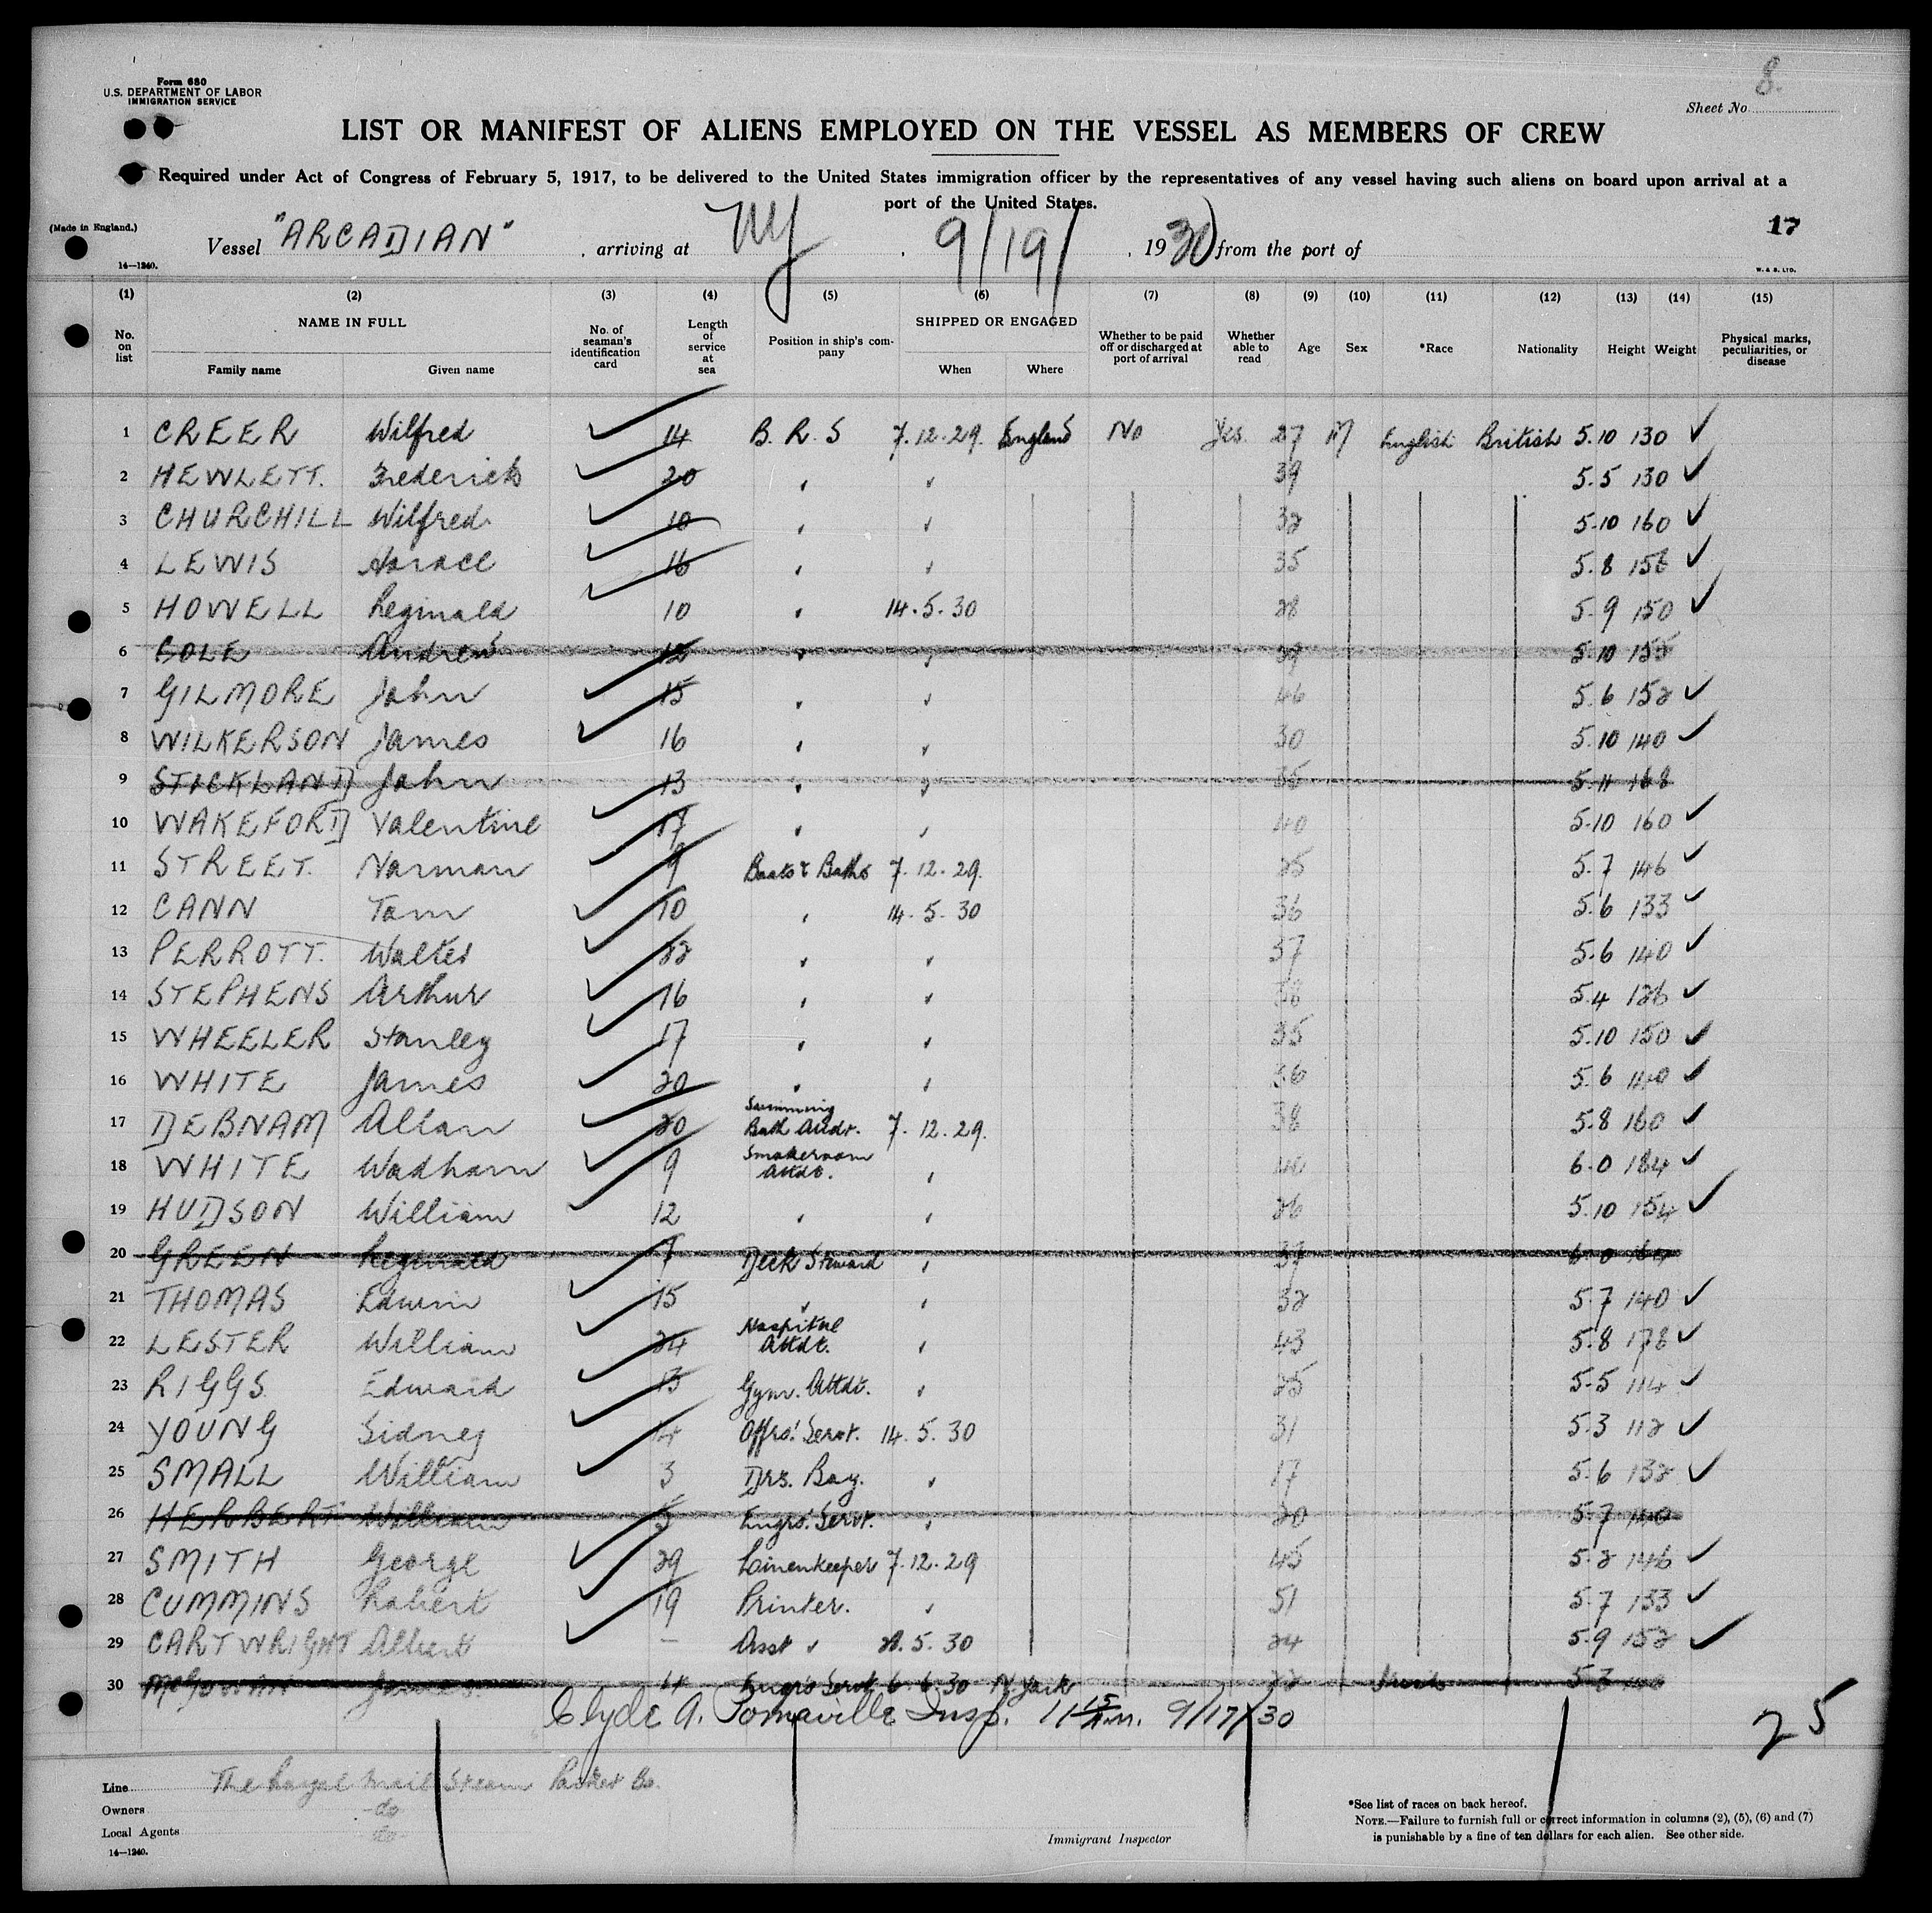 Form 680
U.S. DEPARTMENT OF LABOR
IMMIGRATION SERVICE
8.
Sheet No
LIST OR MANIFEST OF ALIENS EMPLOYED ON THE VESSEL AS MEMBERS OF CREW
Required under Act of Congress of February 5, 1917, to be delivered to the United States immigration officer by the representatives of any vessel having such aliens on board upon arrival at a
port of the United States.
(Made in England.)
17
Vessel "ARCADIAN" , arriving at NY , 9/19/ , 1930 from the port of
14—1240.
W. & S. LTD.
(1) (2) (3) (4) (5) (6) (7) (8) (9) (10) (11) (12) (13) (14) (15)
No. on list NAME IN FULL Family name Given name No. of seaman's identification card Length of service at sea Position in ship's company SHIPPED OR ENGAGED When Where Whether to be paid off or discharged at port of arrival Whether able to read Age Sex *Race Nationality Height Weight Physical marks, peculiarities, or disease
1 CREER Wilfred ✓ 14 B. R. S 7.12.29. England No Yes. 27 M English British 5.10 130 ✓
2 HEWLETT. Frederick ✓ 20 " " 39 5.5 130 ✓
3 CHURCHILL Wilfred ✓ 10 " " 32 5.10 160 ✓
4 LEWIS Horace ✓ 16 " " 35 5.8 156 ✓
5 HOWELL Reginald ✓ 10 " 14.5.30 28 5.9 150 ✓
6 COLE Andrew 12 " " 39 5.10
7 GILMORE John ✓ 15 " " 46 5.6 152 ✓
8 WILKERSON James ✓ 16 " " 30 5.10 140 ✓
9 STICKLAND John 13 " " 35 5.11 168
10 WAKEFORD Valentine ✓ 17 " " 40 5.10 160 ✓
11 STREET. Norman ✓ 9 Boots & Baths 7.12.29. 25 5.7 146 ✓
12 CANN Tom ✓ 10 " 14.5.30 36 5.6 133 ✓
13 PERROTT. Walter ✓ 22 " " 37 5.6 140 ✓
14 STEPHENS Arthur ✓ 16 " " 38 5.4 126 ✓
15 WHEELER Stanley ✓ 17 " " 35 5.10 150 ✓
16 WHITE James ✓ 20 " " 36 5.6 140 ✓
17 DEBNAM Allan ✓ 20 Swimming Bath Attdt. 7.12.29. 38 5.8 160 ✓
18 WHITE Wadham ✓ 9 Smokeroom Attdt. " 40 6.0 184 ✓
19 HUDSON William ✓ 12 " " 26 5.10 154 ✓
20 GREEN Reginald 7 Deck Steward " 39 6.0
21 THOMAS Edwin ✓ 15 " " 32 5.7 140 ✓
22 LESTER William ✓ 24 Hospital Attdt. " 43 5.8 178 ✓
23 RIGGS Edward ✓ 13 Gym. Attdt. " 25 5.5 114 ✓
24 YOUNG Sidney ✓ 14 Offrs! Servt. 14.5.30 31 5.3 112 ✓
25 SMALL William ✓ 3 Drs. Boy. " 17 5.6 132 ✓
26 HERBERT William Engrs! Servt. " 20 5.7 140
27 SMITH George ✓ 29 Linenkeeper 7.12.29 45 5.2 146 ✓
28 CUMMINS Robert ✓ 19 Printer. " 51 5.7 133 ✓
29 CARTWRIGHT Albert ✓ — Asst " 21.5.30 24 5.9 152 ✓
30 McGOWAN James 4 Engrs Servt 6 6 30 N. York 22 Irish 5.3
Clyde A. Pomaville Insp. 11 15 A.m. 9/17/30
25
Line The Royal Mail Steam Packet Co.
Owners -do
Local Agents do
14—1240.
Immigrant Inspector
*See list of races on back hereof.
NOTE.—Failure to furnish full or correct information in columns (2), (5), (6) and (7)
is punishable by a fine of ten dollars for each alien. See other side.